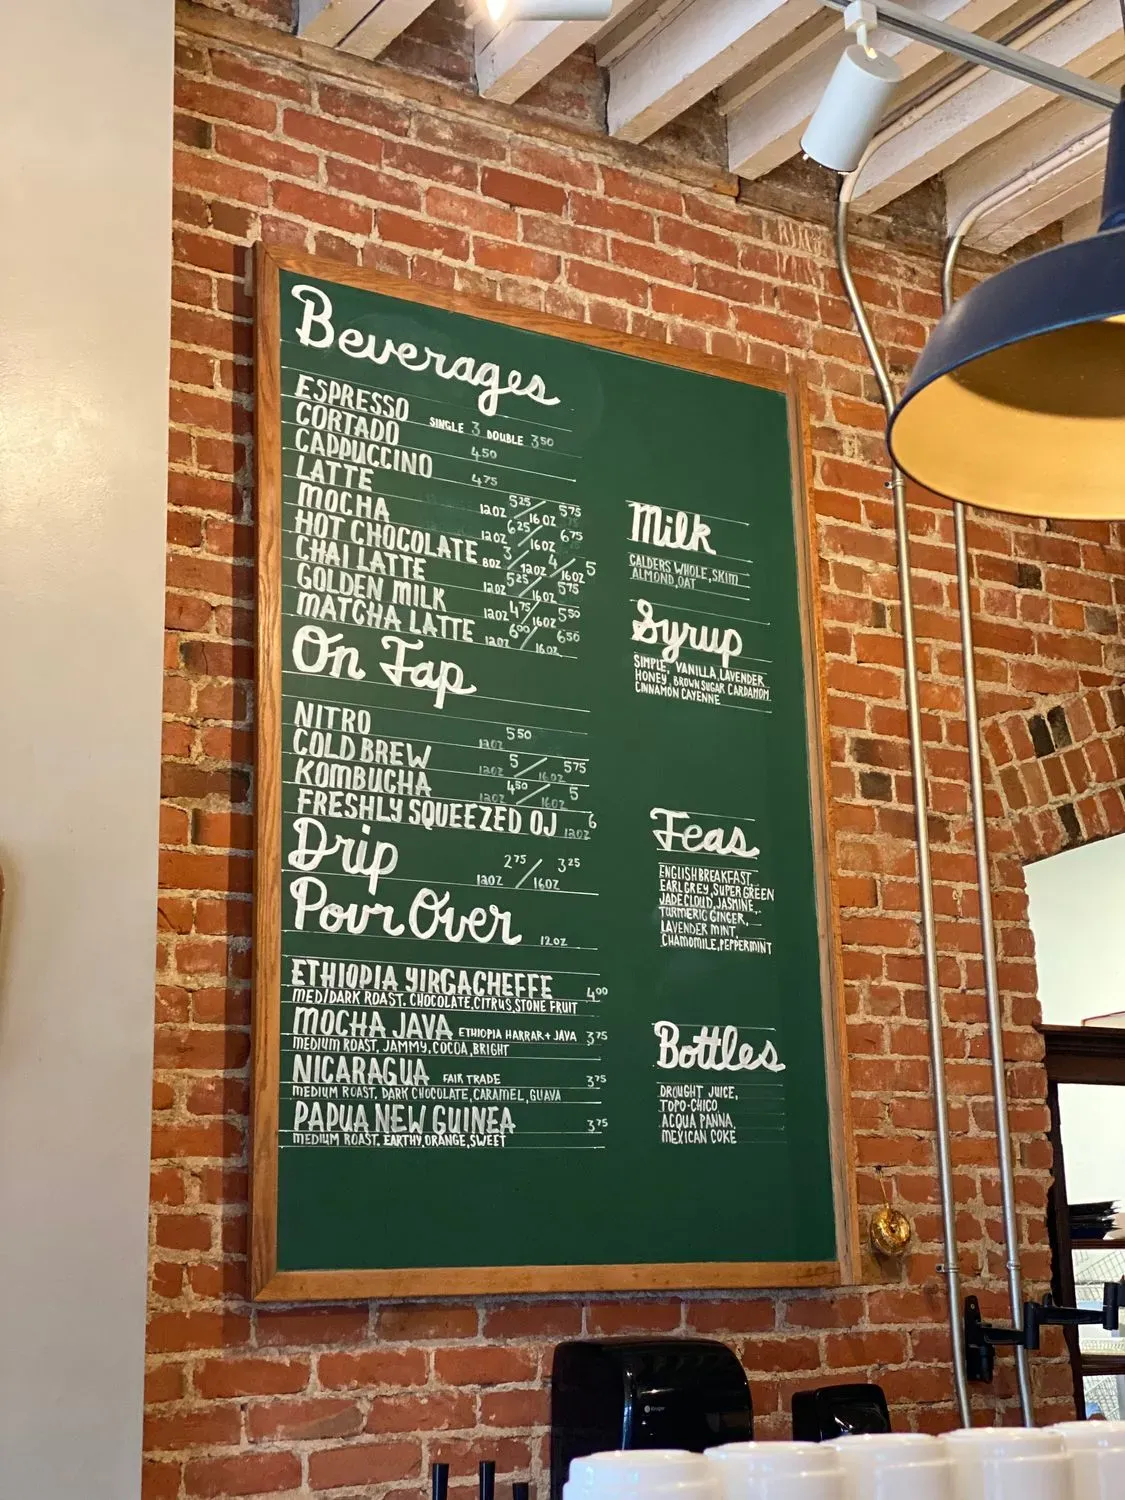 Beverages
ESPRESSO SINGLE 3 DOUBLE 3 50
CORTADO 4 50
CAPPUCCINO 4 75
LATTE 12OZ 5 25 / 16 OZ 5 75
MOCHA 12OZ 6 25 / 16OZ 6 75
HOT CHOCOLATE 8OZ 3 / 12OZ 4 / 16OZ 5
CHAI LATTE 12OZ 5 25 / 16OZ 5 75
GOLDEN MILK 12OZ 4 75 / 16OZ 5 50
MATCHA LATTE 12OZ 6 00 / 16OZ 6 50
On Tap
NITRO 12OZ 5 50
COLD BREW 12OZ 5 / 16OZ 5 75
KOMBUCHA 12OZ 4 50 / 16OZ 5
FRESHLY SQUEEZED OJ 12OZ 6
Drip 12OZ 2 75 / 16OZ 3 25
Pour Over 12OZ
ETHIOPIA YIRGACHEFFE 4 00
MED/DARK ROAST, CHOCOLATE, CITRUS, STONE FRUIT
MOCHA JAVA ETHIOPIA HARRAR + JAVA 3 75
MEDIUM ROAST, JAMMY, COCOA, BRIGHT
NICARAGUA FAIR TRADE 3 75
MEDIUM ROAST, DARK CHOCOLATE, CARAMEL, GUAVA
PAPUA NEW GUINEA 3 75
MEDIUM ROAST, EARTHY, ORANGE, SWEET
Milk
CALDERS WHOLE, SKIM
ALMOND, OAT
Syrup
SIMPLE, VANILLA, LAVENDER
HONEY, BROWN SUGAR CARDAMOM
CINNAMON CAYENNE
Teas
ENGLISH BREAKFAST,
EARL GREY, SUPER GREEN
JADE CLOUD, JASMINE,
TURMERIC GINGER,
LAVENDER MINT,
CHAMOMILE, PEPPERMINT
Bottles
DROUGHT JUICE,
TOPO-CHICO
ACQUA PANNA,
MEXICAN COKE